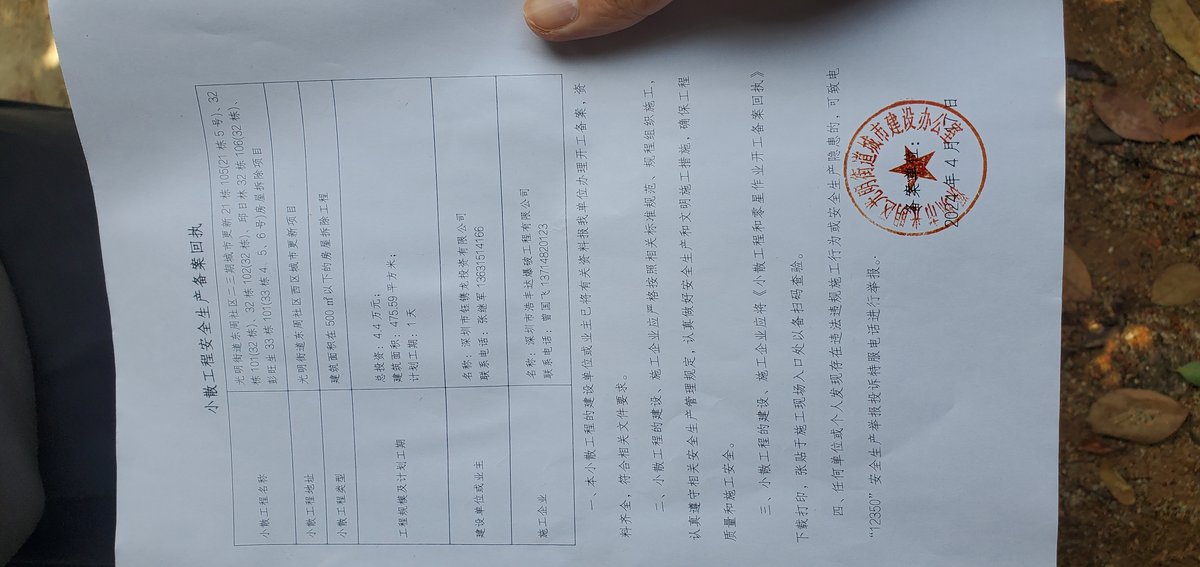 小散工程安全生产备案回执
小散工程名称
光明街道东周社区二三期城市更新21栋105(21栋5号)、32
栋101(32栋)、32栋102(32栋)、邱日林32栋106(32栋)、
彭旺生33栋101(33栋4、5、6号)房屋拆除项目
小散工程地址
光明街道东周社区西区城市更新项目
小散工程类型
建筑面积在500㎡以下的房屋拆除工程
工程规模及计划工期
总投资:4.4万元;
建筑面积:475.59平方米;
计划工期:1天
建设单位或业主
名称:深圳市钰镌龙投资有限公司
联系电话:张继军13631514166
施工企业
名称:深圳市浩丰达爆破工程有限公司
联系电话:曾国飞13714820123
一、本小散工程的建设单位或业主已将有关资料报我单位办理开工备案,资
料齐全,符合相关文件要求。
二、小散工程的建设、施工企业应严格按照相关标准规范、规程组织施工,
认真遵守相关安全生产管理规定,认真做好安全生产和文明施工措施,确保工程
质量和施工安全。
三、小散工程的建设、施工企业应将《小散工程和零星作业开工备案回执》
下载打印,张贴于施工现场入口处以备扫码查验。
四、任何单位或个人发现存在违法违规施工行为或安全生产隐患的,可致电
“12350”安全生产举报投诉特服电话进行举报。
备案单位:
2024年4月 日
区光明街道城市建设办公室